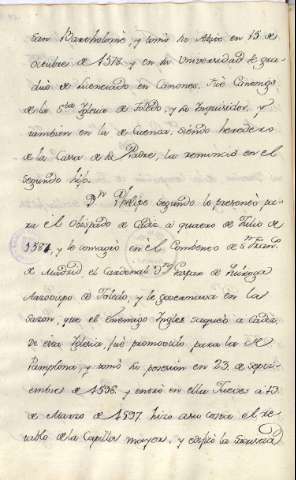 San Bartholomé, y tomó la Abito en 15 de
octubre de 1578 y en la Universidad le gra-
duó de Licenciado en Canones. Fue Canonigo
de la Sta Iglesia de Toledo, y su Inquisidor, y
tambien en la de Cuenca, siendo heredero
de la Casa de su Padre, la renunció en el
segundo hijo.
Dn Phelipe segundo lo presentó pa-
ra el Obispado de Cadiz a quatro de Julio de
y le consagró en el Combento de Sn
de Madrid el Cardenal Dn Gaspar de Quiroga
Arzobispo de Toledo, y le governava en la
sazon, que el Enemigo Ingles saqueó a Cadiz,
de esta Iglesia, fué promovido para la de
Pamplona, y tomó la posesion en 23 de septi-
embre de 1596 y entró en ella Jueves a 13
de Marzo de 1597 hizo a su costa el re-
tablo de la Capilla mayor, y edificó la